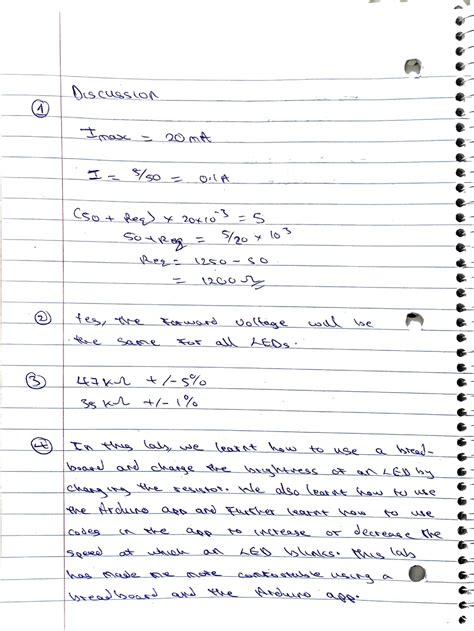 DISCUSSION
①
Imax = 20mA
I = 5/50 = 0.1A
(50 + Req) × 20×10⁻³ = 5
50+Req = 5/20 × 10³
Req = 1250 - 50
= 1200 Ω
② Yes, the forward voltage will be
the same for all LEDs.
③ 47 KΩ +/- 5%
35 KΩ +/- 1%
④ In this lab, we learnt how to use a bread-
board and change the brightness of an LED by
changing the resistor. We also learnt how to use
the Arduino app and further learnt how to use
codes in the app to increase or decrease the
speed at which an LED blinks. This lab
has made me more comfortable using a
breadboard and the Arduino app.